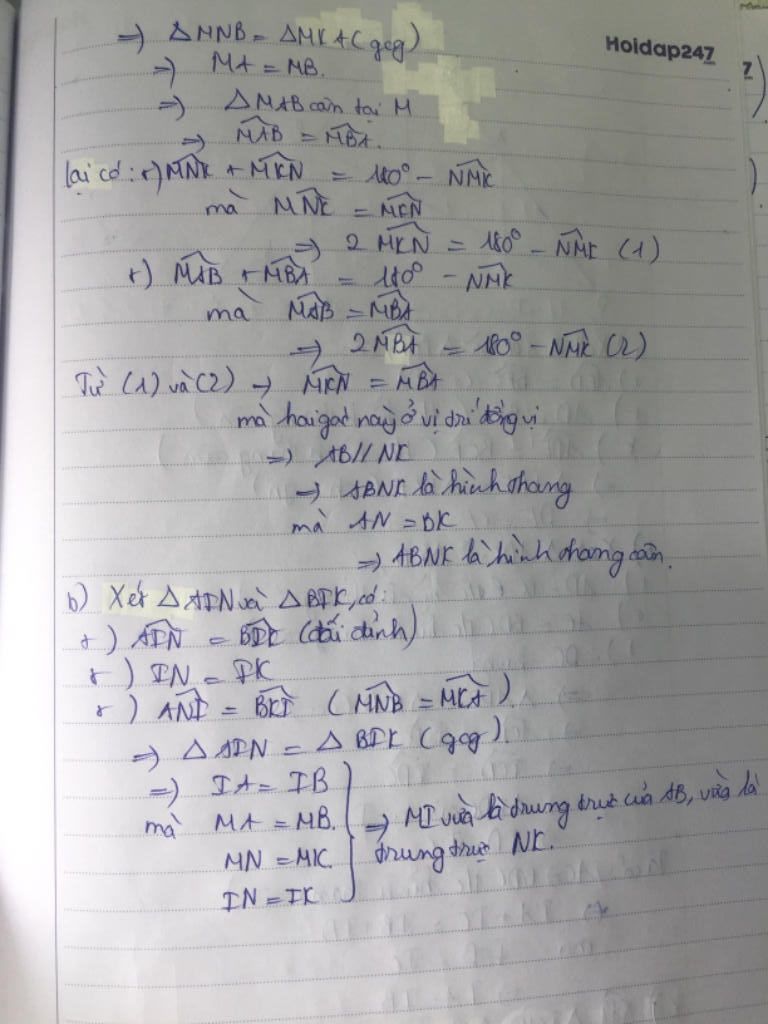 Hoidap247
⇒ △MNB = △MKA (gcg)
⇒ MA = MB.
⇒ △MAB cân tại M
⇒ \widehat{MAB} = \widehat{MBA}.
lại có: +) \widehat{MNK} + \widehat{MKN} = 180° - \widehat{NMK}
mà \widehat{MNK} = \widehat{MKN}
⇒ 2\widehat{MKN} = 180° - \widehat{NMK} (1)
+) \widehat{MAB} + \widehat{MBA} = 180° - \widehat{NMK}
mà \widehat{MAB} = \widehat{MBA}
⇒ 2\widehat{MBA} = 180° - \widehat{NMK} (2)
Từ (1) và (2) → \widehat{MKN} = \widehat{MBA}
mà hai góc này ở vị trí đồng vị
⇒ AB // NK
⇒ ABNK là hình thang
mà AN = BK
⇒ ABNK là hình thang cân.
b) Xét △AIN và △BIK, có:
+) \widehat{AIN} = \widehat{BIK} (đối đỉnh)
+) IN = IK
+) \widehat{ANI} = \widehat{BKI} (\widehat{MNB} = \widehat{MKA}).
⇒ △AIN = △BIK (gcg).
⇒ IA = IB
mà MA = MB.
MN = MK.
IN = IK
⇒ MI vừa là trung trực của AB, vừa là
trung trực NK.